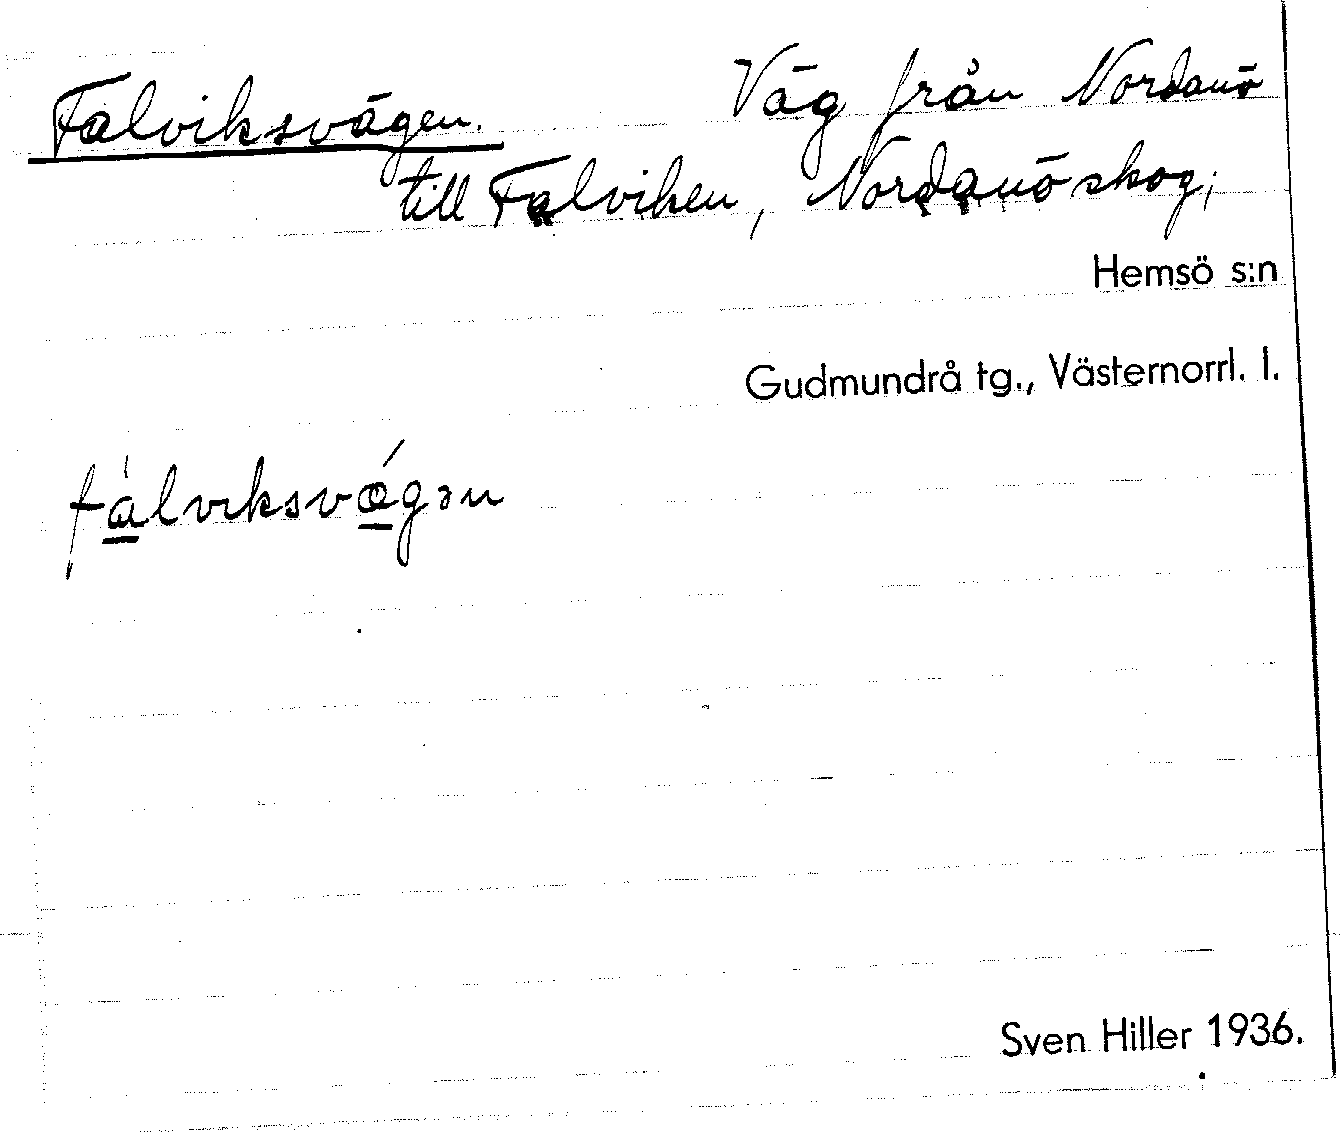 Falviksvägen. Väg från Nordanö
till Falviken, Nordanö skog;
Hemsö s:n
Gudmundrå tg., Västernorrl. l.
fàlviksvǿgən
Sven Hiller 1936.